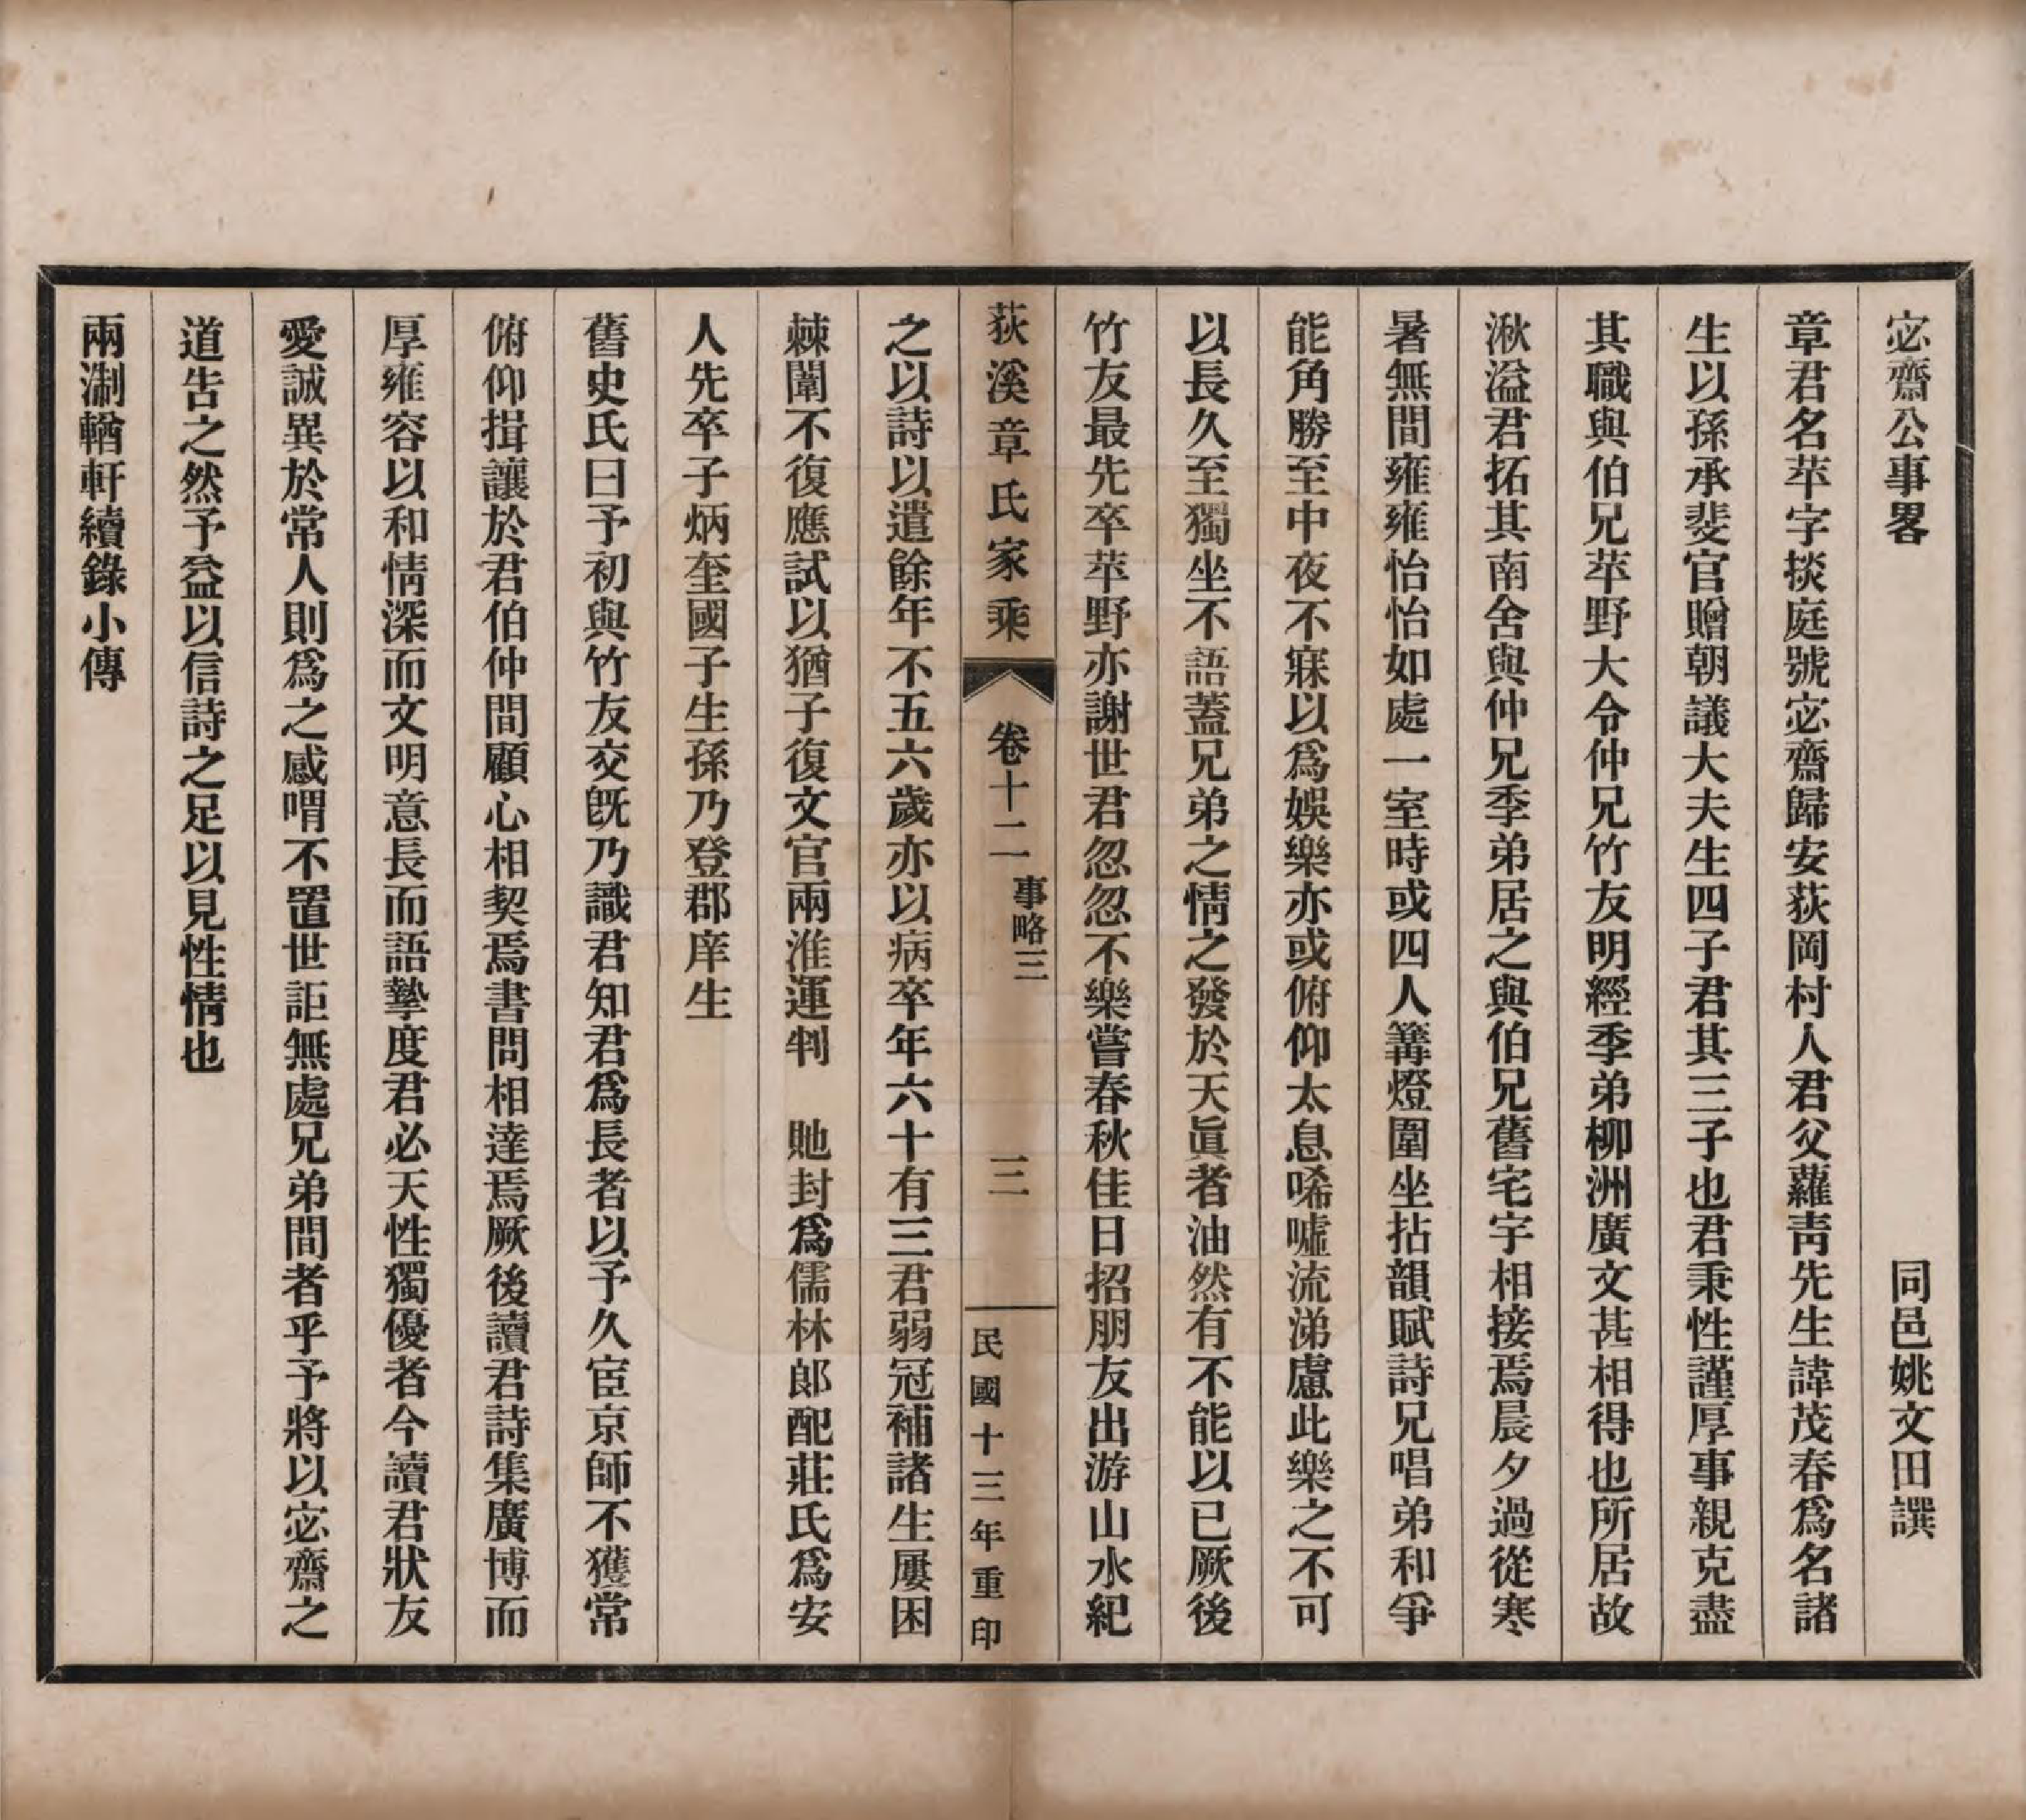 宓齋公事畧　同邑姚文田譔
章君名苹字掞庭號宓齋歸安荻岡村人君父蘿靑先生諱茂春爲名諸
生以孫承斐官贈朝議大夫生四子君其三子也君秉性謹厚事親克盡
其職與伯兄苹野大令仲兄竹友明經季弟柳洲廣文甚相得也所居故
湫溢君拓其南舍與仲兄季弟居之與伯兄舊宅宇相接焉晨夕過從寒
暑無間雍雍怡怡如處一室時或四人篝燈圍坐拈韻賦詩兄唱弟和爭
能角勝至中夜不寐以爲娛樂亦或俯仰太息唏嘘流涕慮此樂之不可
以長久至獨坐不語蓋兄弟之情之發於天眞者油然有不能以已厥後
竹友最先卒苹野亦謝世君忽忽不樂嘗春秋佳日招朋友出游山水紀
荻溪章氏家乘　卷十二　事略三　三　民國十三年重印
之以詩以遣餘年不五六歲亦以病卒年六十有三君弱冠補諸生屢困
棘闈不復應試以猶子復文官兩淮運判　貤封爲儒林郎配莊氏爲安
人先卒子炳奎國子生孫乃登郡庠生
舊史氏曰予初與竹友交旣乃識君知君爲長者以予久宦京師不獲常
俯仰揖讓於君伯仲間顧心相契焉書問相達焉厥後讀君詩集廣博而
厚雍容以和情深而文明意長而語摯度君必天性獨優者今讀君狀友
愛誠異於常人則爲之感喟不置世詎無處兄弟間者乎予將以宓齋之
道告之然予益以信詩之足以見性情也
兩淛輶軒續錄小傳